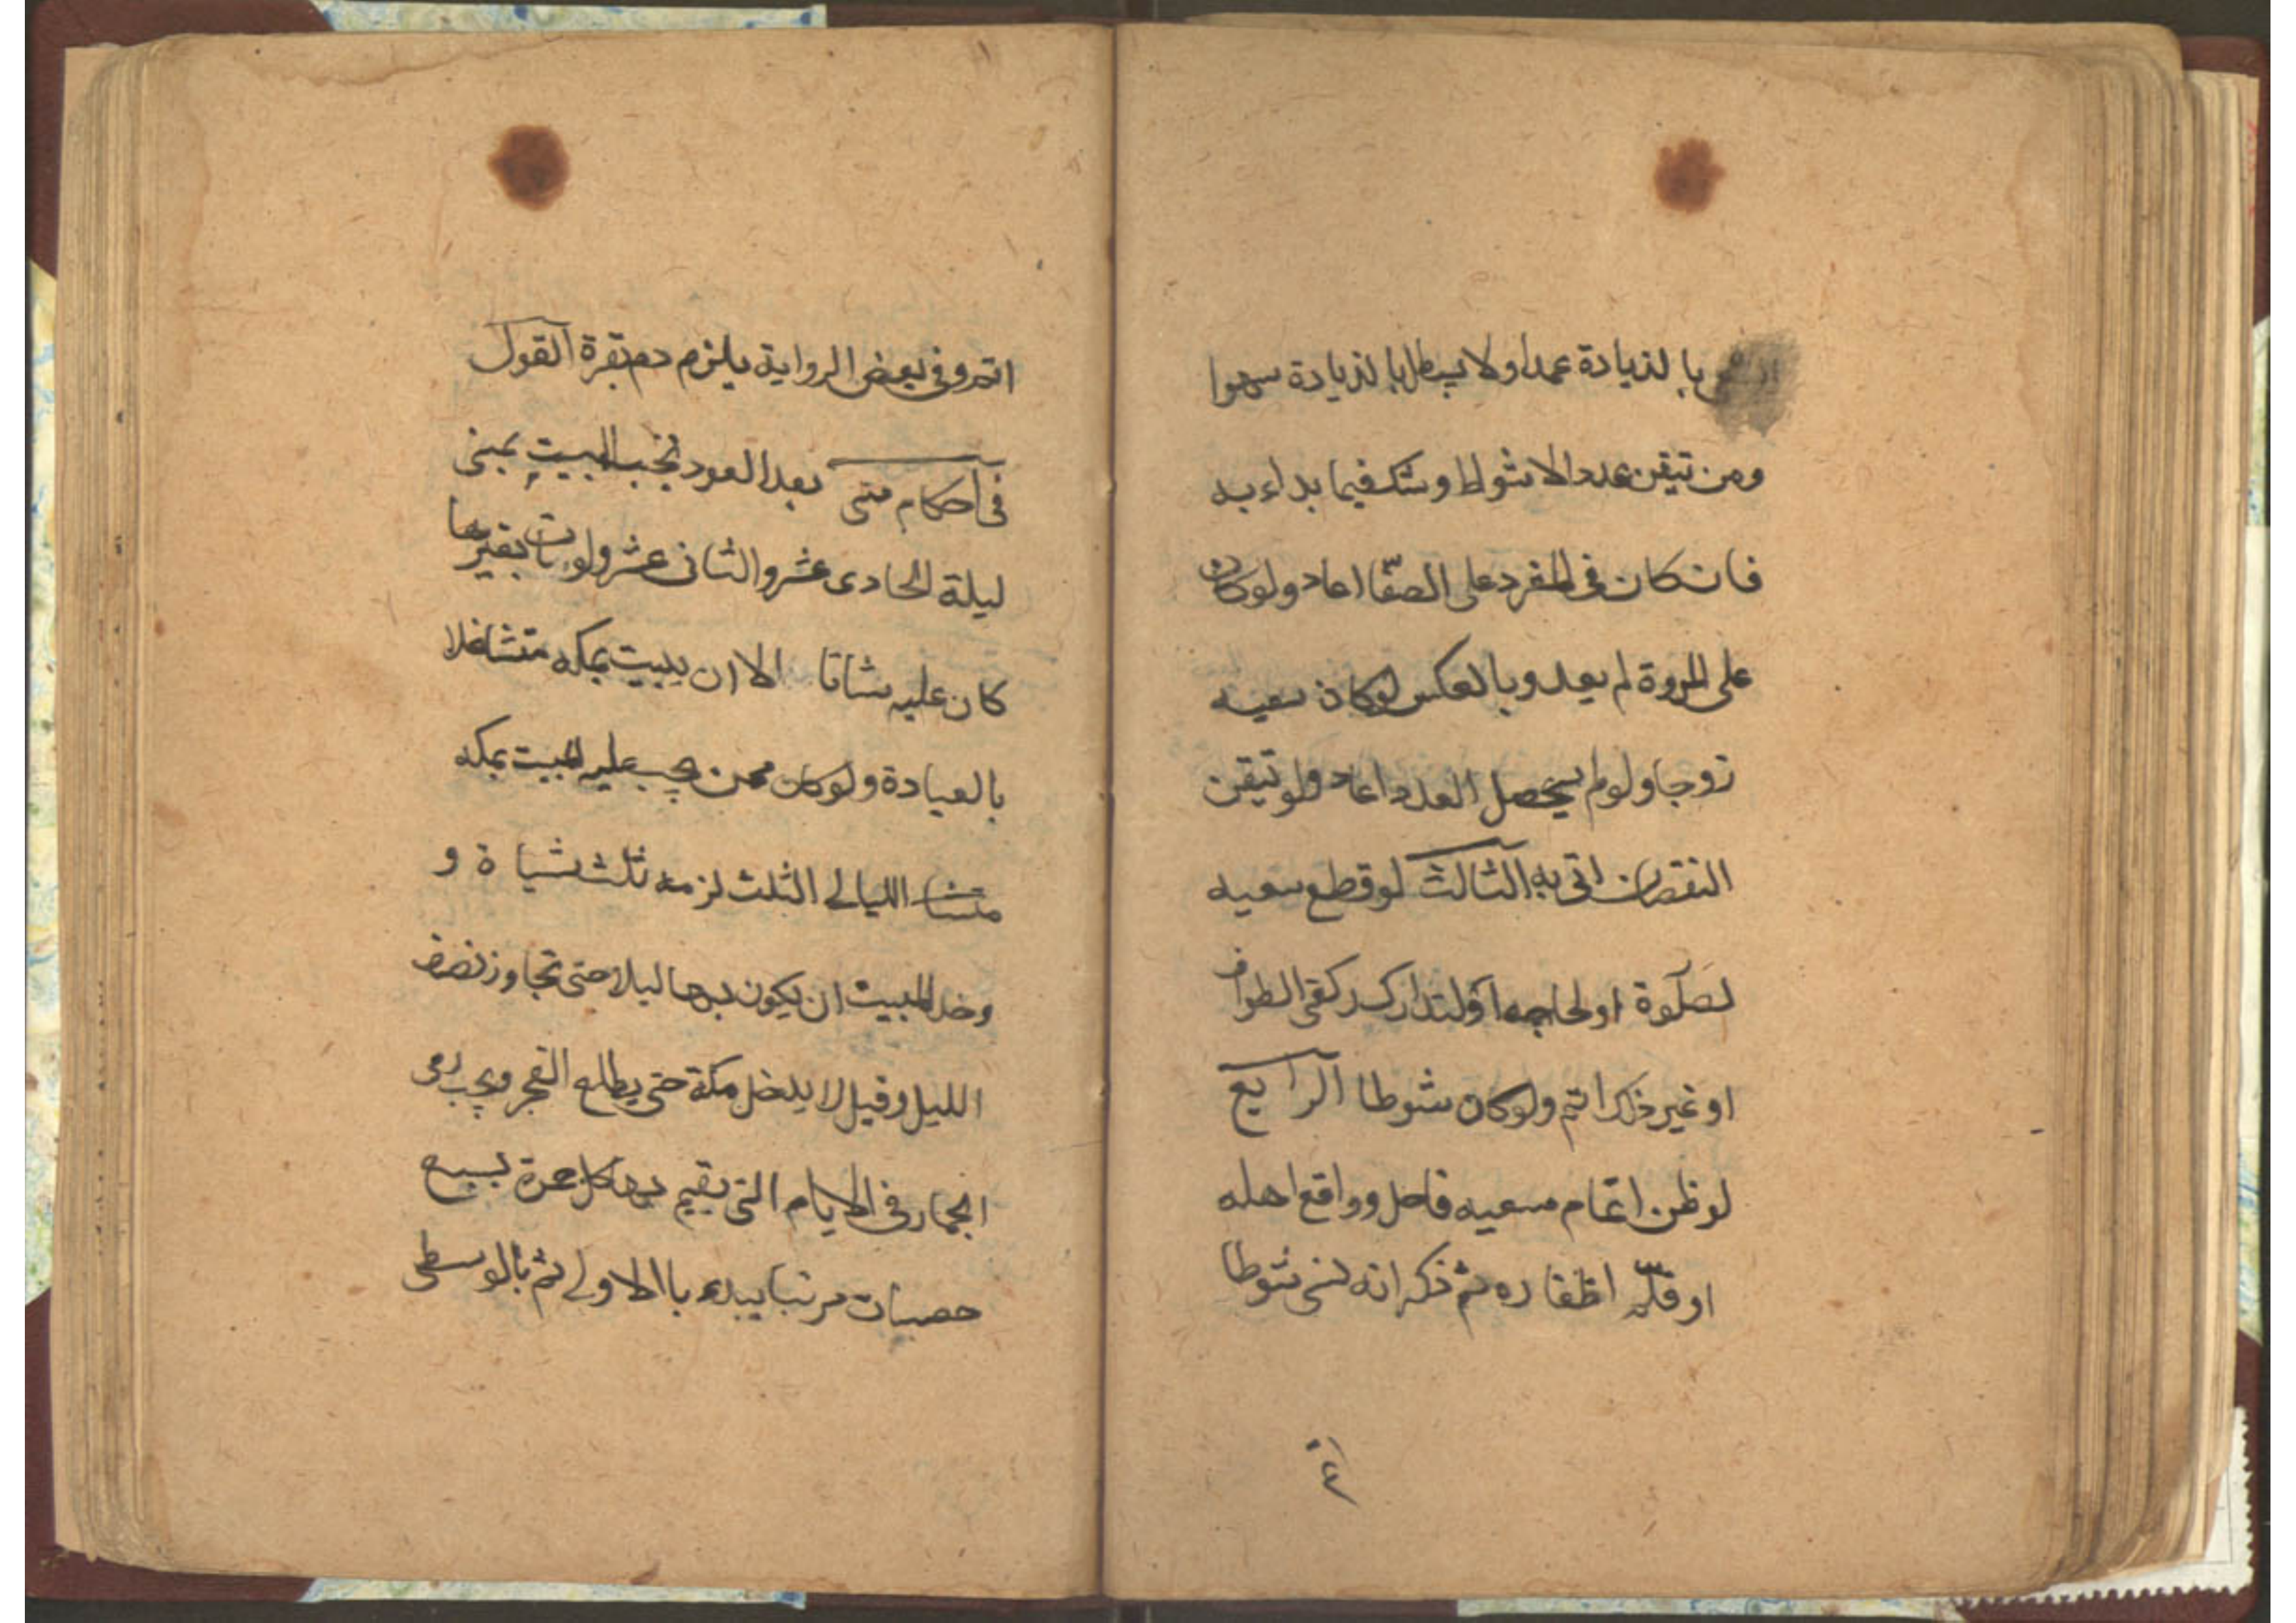 بالزيادة عمدا ولا يبطل بالزيادة سهوا
ومن تيقن عدد الاشواط وشك فيما بداء به
فان كان في المفرد على الصفا اعاد ولو كان
على المروة لم يعد وبالعكس لو كان سعيه
زوجا ولو لم يحصل العدد اعاد ولو تيقن
النقصان اتى به الثالث لو قطع سعيه
لصلوة او لحاجه او لتدارك ركعتى الطواف
او غير ذلك اتم ولو كان شوطا الرابع
لو ظن اتمام سعيه فاحل وواقع اهله
او قلم اظفاره ثم ذكر انه نسى شوطا
اتم وفى بعض الرواية يلزم دم بقرة القول
فى احكام منى بعد العود تجب المبيت بمنى
ليلة الحادى عشر والثانى عشر ولو بات بغيرها
كان عليه شاتا الا ان يبيت بمكه متشاغلا
بالعبادة ولو كان ممن يجب عليه المبيت بمكه
الليالى الثلث لزمه ثلث شياة و
وحد المبيت ان يكون بها ليلا حتى تجاوز نصف
الليل وقيل لا يدخل مكة حتى يطلع الفجر ويجب رمى
الجمار فى الايام التى يقيم بها كل جمرة بسبع
حصيات مرتبا يبدء باالاولى ثم بالوسطى